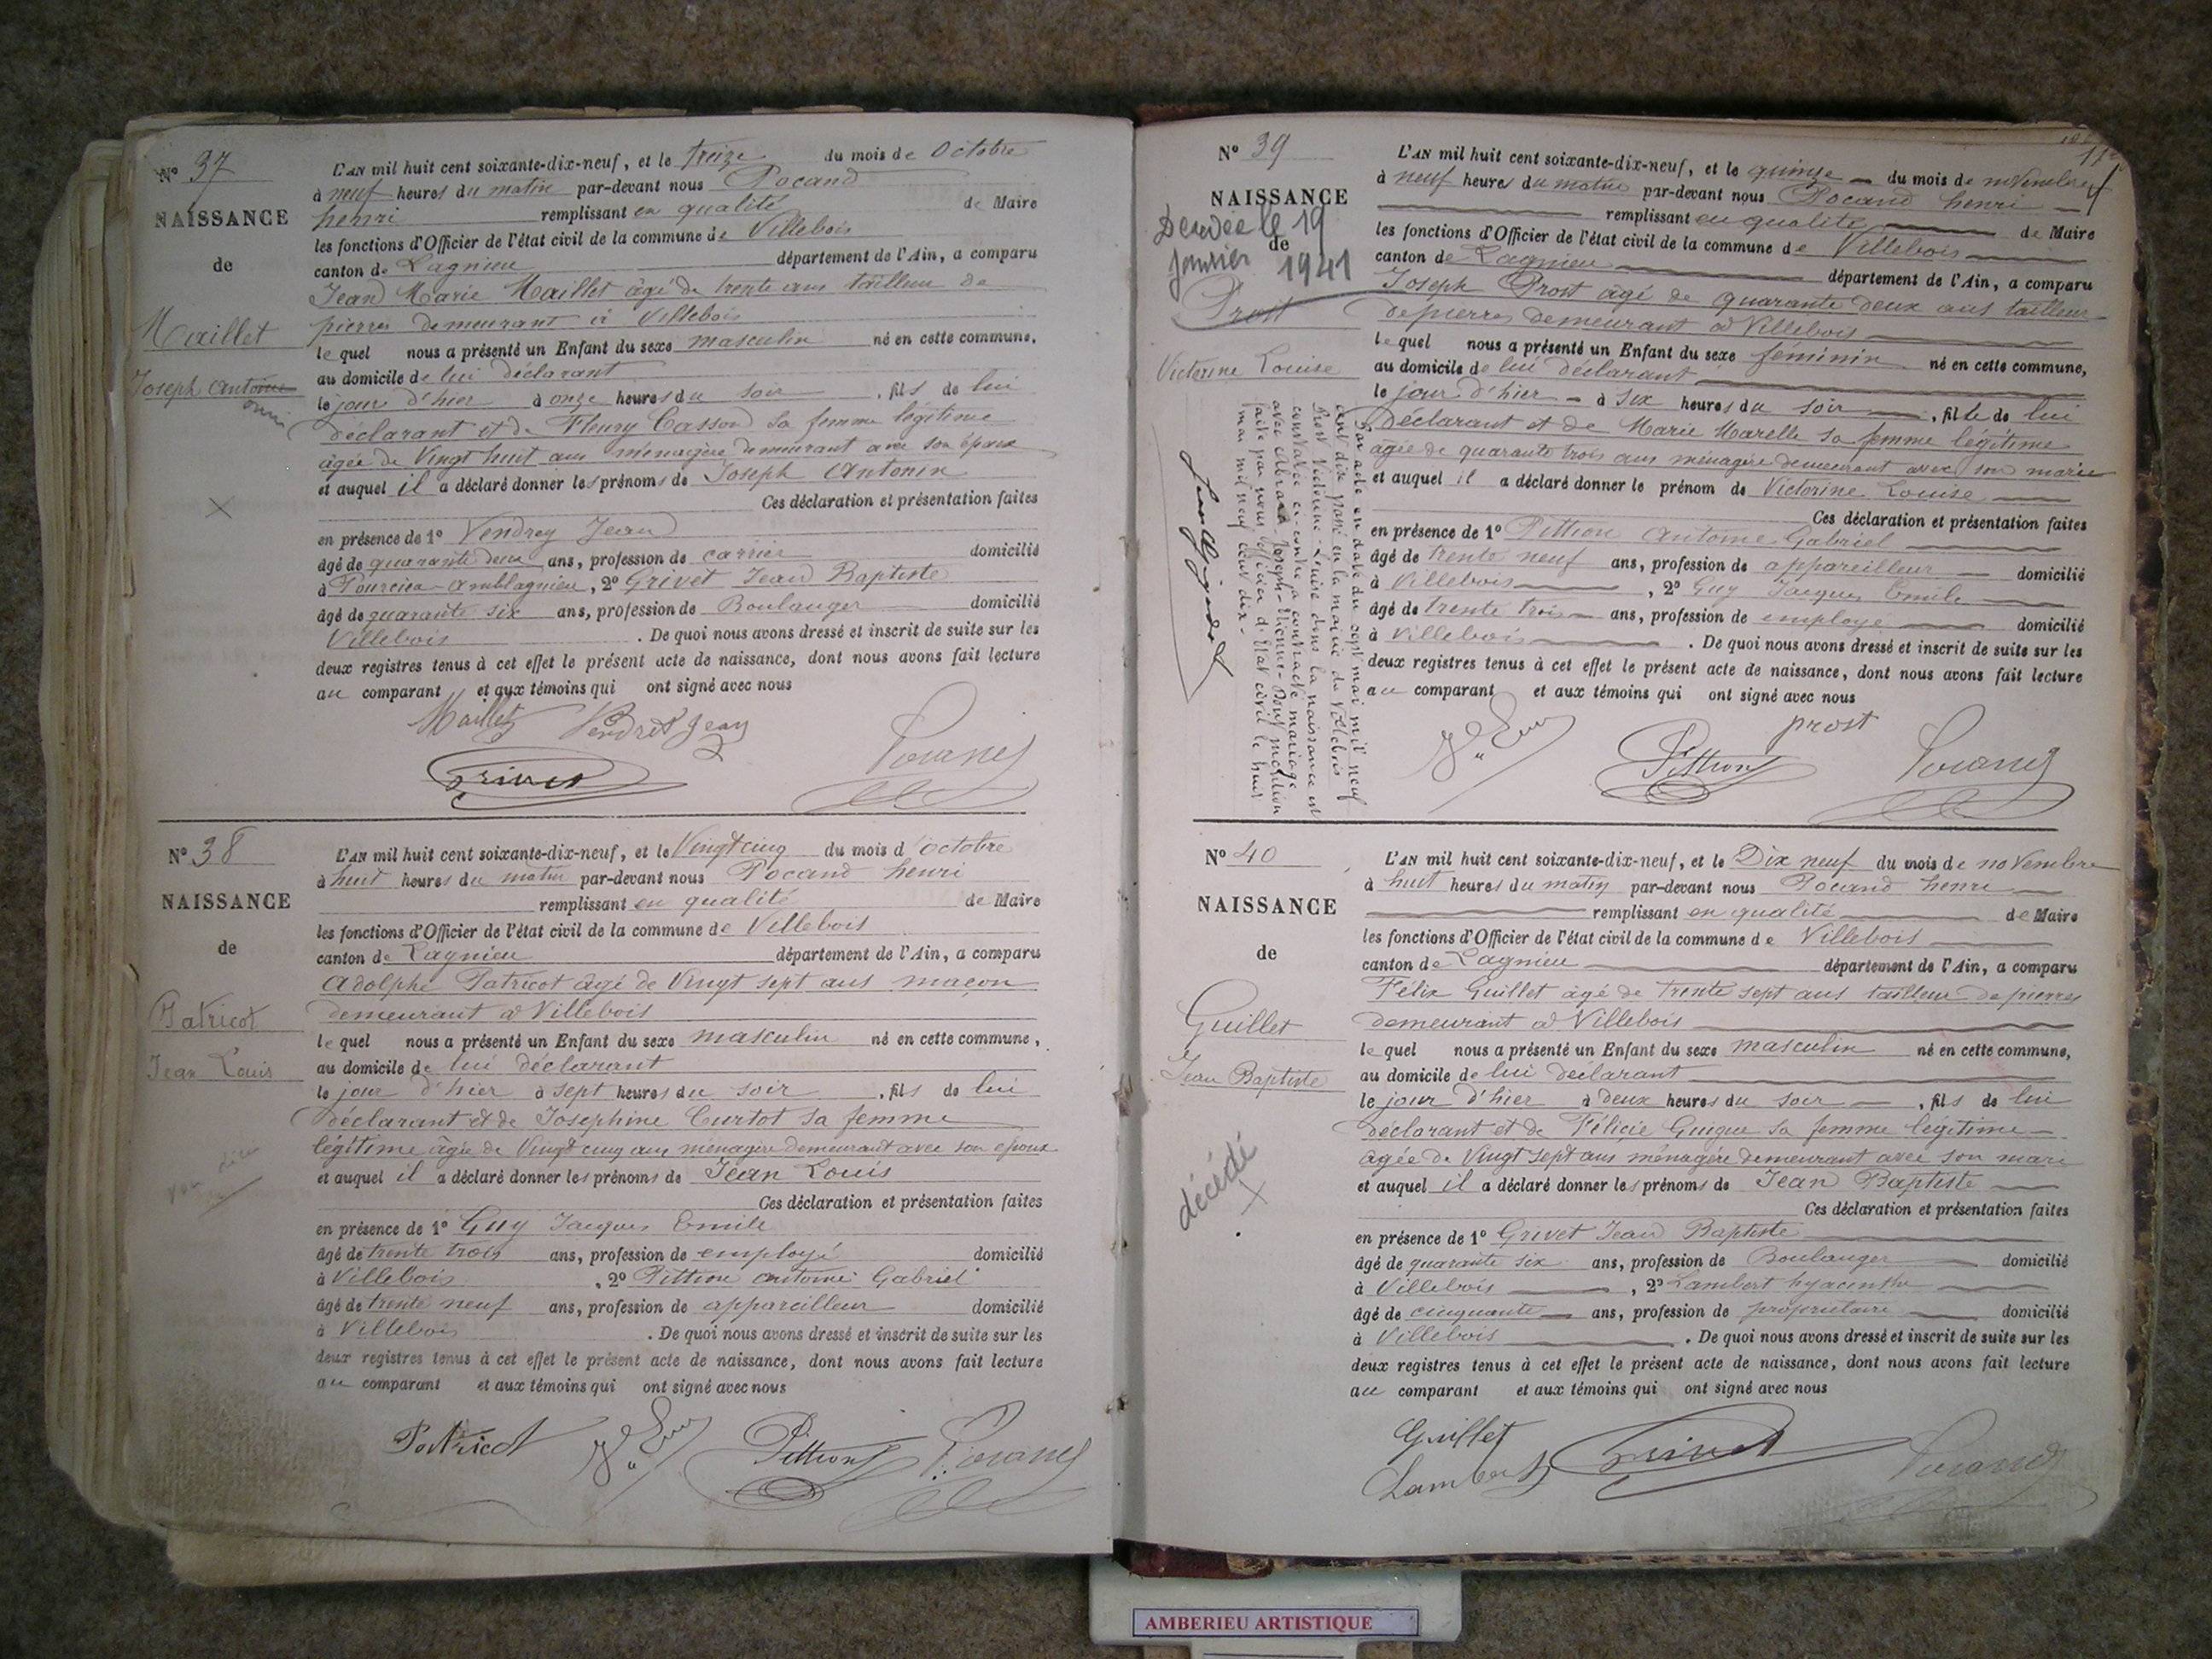 N° 37
NAISSANCE
de
Maillet
Joseph Antoine
onin
L'AN mil huit cent soixante-dix-neuf, et le treize du mois de Octobre
à neuf heures du matin par-devant nous Pocand
henri remplissant en qualité de Maire
les fonctions d'Officier de l'état civil de la commune de Villebois
canton de Lagnieu département de l'Ain, a comparu
Jean Marie Maillet âgé de trente ans tailleur de
pierres demeurant à Villebois
lequel nous a présenté un Enfant du sexe masculin né en cette commune,
au domicile de lui déclarant
le jour d'hier à onze heures du soir, fils de lui
déclarant et de Fleury Casson sa femme légitime
âgée de Vingt huit ans ménagère demeurant avec son époux
et auquel il a déclaré donner les prénoms de Joseph Antonin
Ces déclaration et présentation faites
en présence de 1° Vendrey Jean
âgé de quarante deux ans, profession de carrier domicilié
à Amblagnieu, 2° Grivet Jean Baptiste
âgé de quarante six ans, profession de Boulanger domicilié
Villebois. De quoi nous avons dressé et inscrit de suite sur les
deux registres tenus à cet effet le présent acte de naissance, dont nous avons fait lecture
au comparant et aux témoins qui ont signé avec nous
Maillet Vendret Jean
Grivet Pocand
N° 38
NAISSANCE
de
Patricot
Jean Louis
L'AN mil huit cent soixante-dix-neuf, et le Vingt cinq du mois d'octobre
à huit heures du matin par-devant nous Pocand henri
remplissant en qualité de Maire
les fonctions d'Officier de l'état civil de la commune de Villebois
canton de Lagnieu département de l'Ain, a comparu
Adolphe Patricot âgé de Vingt sept ans maçon
demeurant à Villebois
lequel nous a présenté un Enfant du sexe masculin né en cette commune,
au domicile de lui déclarant
le jour d'hier à sept heures du soir, fils de lui
déclarant et de Josephine Curtot sa femme
légitime âgée de Vingt cinq ans ménagère demeurant avec son epoux
et auquel il a déclaré donner les prénoms de Jean Louis
Ces déclaration et présentation faites
en présence de 1° Guy Jacques Emile
âgé de trente trois ans, profession de employé domicilié
à Villebois, 2° Pittion antoine Gabriel
âgé de trente neuf ans, profession de appareilleur domicilié
à Villebois. De quoi nous avons dressé et inscrit de suite sur les
deux registres tenus à cet effet le présent acte de naissance, dont nous avons fait lecture
au comparant et aux témoins qui ont signé avec nous
Patricot Pittion Pocand
N° 39
NAISSANCE
de
Décédée le 19
janvier 1941
Prost
Victorine Louise
L'AN mil huit cent soixante-dix-neuf, et le quinze du mois de novembre
à neuf heures du matin par-devant nous Pocand henri
remplissant en qualité de Maire
les fonctions d'Officier de l'état civil de la commune de Villebois
canton de Lagnieu département de l'Ain, a comparu
Joseph Prost âgé de quarante deux ans tailleur
de pierres demeurant à Villebois
lequel nous a présenté un Enfant du sexe féminin né en cette commune,
au domicile de lui déclarant
le jour d'hier à six heures du soir, fille de lui
déclarant et de Marie Marelle sa femme légitime
agée de quarante trois ans ménagère demeurant avec son marie
et auquel il a déclaré donner le prénom de Victorine Louise
Ces déclaration et présentation faites
en présence de 1° Pittion Antoine Gabriel
âgé de trente neuf ans, profession de appareilleur domicilié
à Villebois, 2° Guy Jacques Emile
âgé de trente trois ans, profession de employé domicilié
à Villebois. De quoi nous avons dressé et inscrit de suite sur les
deux registres tenus à cet effet le présent acte de naissance, dont nous avons fait lecture
au comparant et aux témoins qui ont signé avec nous
prost
Pittion Pocand
Par acte en date du sept mai mil neuf
cent dix passé en la mairie de Villebois
Prost Victorine-Louise dont la naissance est
constatée ci-contre a contracté mariage
avec Joseph Dont mention
faite par nous officier d'Etat civil le huit
mai mil neuf cent dix-
N° 40
NAISSANCE
de
Guillet
Jean Baptiste
décédé
L'AN mil huit cent soixante-dix-neuf, et le Dix neuf du mois de novembre
à huit heures du matin par-devant nous Pocand henri
remplissant en qualité de Maire
les fonctions d'Officier de l'état civil de la commune de Villebois
canton de Lagnieu département de l'Ain, a comparu
Félix Guillet âgé de trente sept ans tailleur de pierres
demeurant à Villebois
lequel nous a présenté un Enfant du sexe masculin né en cette commune,
au domicile de lui declarant
le jour d'hier à deux heures du soir, fils de lui
déclarant et de Félicie Guigue sa femme légitime
agée de Vingt sept ans ménagère demeurant avec son mari
et auquel il a déclaré donner les prénoms de Jean Baptiste
Ces déclaration et présentation faites
en présence de 1° Grivet Jean Baptiste
âgé de quarante six ans, profession de Boulanger domicilié
à Villebois, 2° Lambert hyacinthe
âgé de cinquante ans, profession de propriétaire domicilié
à Villebois. De quoi nous avons dressé et inscrit de suite sur les
deux registres tenus à cet effet le présent acte de naissance, dont nous avons fait lecture
au comparant et aux témoins qui ont signé avec nous
Guillet
Lambert Grivet Pocand
AMBERIEU ARTISTIQUE